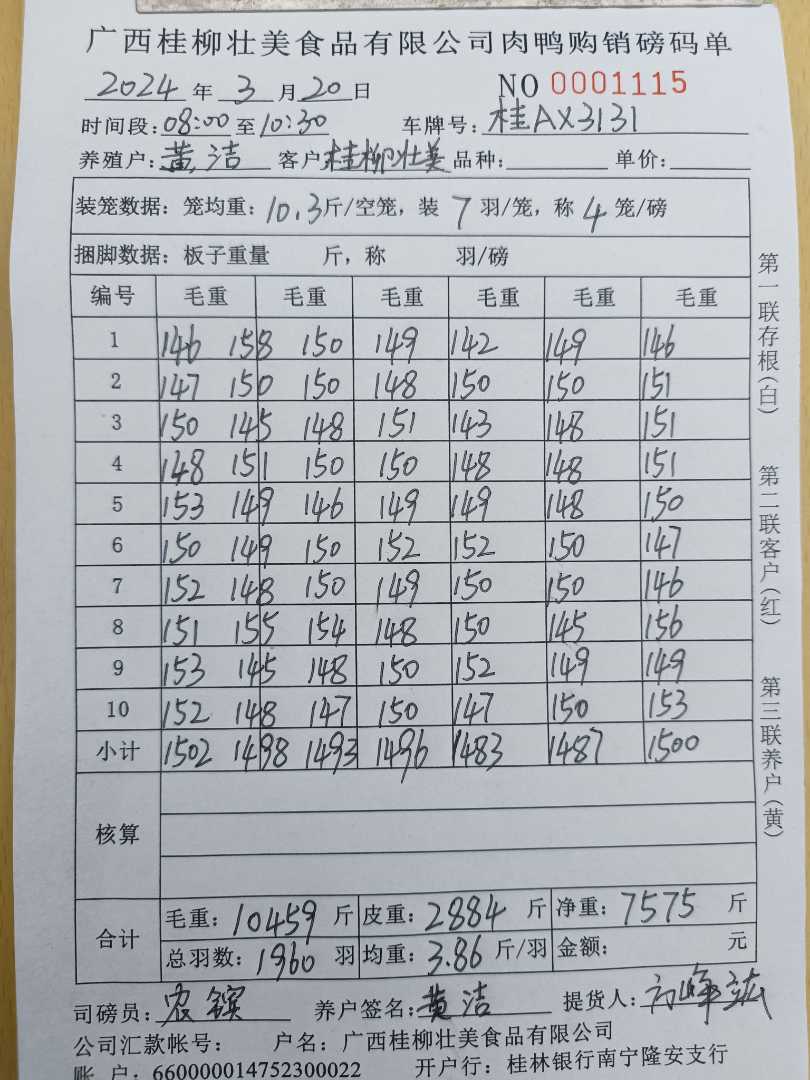 广西桂柳壮美食品有限公司肉鸭购销磅码单
2024 年 3 月 20 日 NO 0001115
时间段: 08:00 至 10:30 车牌号: 桂AX3131
养殖户: 黄洁 客户: 桂柳壮美 品种: 单价:
装笼数据: 笼均重: 10.3 斤/空笼, 装 7 羽/笼, 称 4 笼/磅
捆脚数据: 板子重量 斤, 称 羽/磅
编号 毛重 毛重 毛重 毛重 毛重 毛重
1 146 158 150 149 142 149 146
2 147 150 150 148 150 150 151
3 150 145 148 151 143 148 151
4 148 151 150 150 148 148 151
5 153 149 146 149 149 148 150
6 150 149 150 152 152 150 147
7 152 148 150 149 150 150 146
8 151 155 154 148 150 145 156
9 153 145 148 150 152 149 149
10 152 148 147 150 147 150 153
小计 1502 1498 1493 1496 1483 1487 1500
核算
合计 毛重: 10459 斤 皮重: 2884 斤 净重: 7575 斤
总羽数: 1960 羽 均重: 3.86 斤/羽 金额: 元
司磅员: 农镔 养户签名: 黄洁 提货人:
公司汇款帐号: 户名: 广西桂柳壮美食品有限公司
账 户: 660000014752300022 开户行: 桂林银行南宁隆安支行
第一联存根(白)
第二联客户(红)
第三联养户(黄)